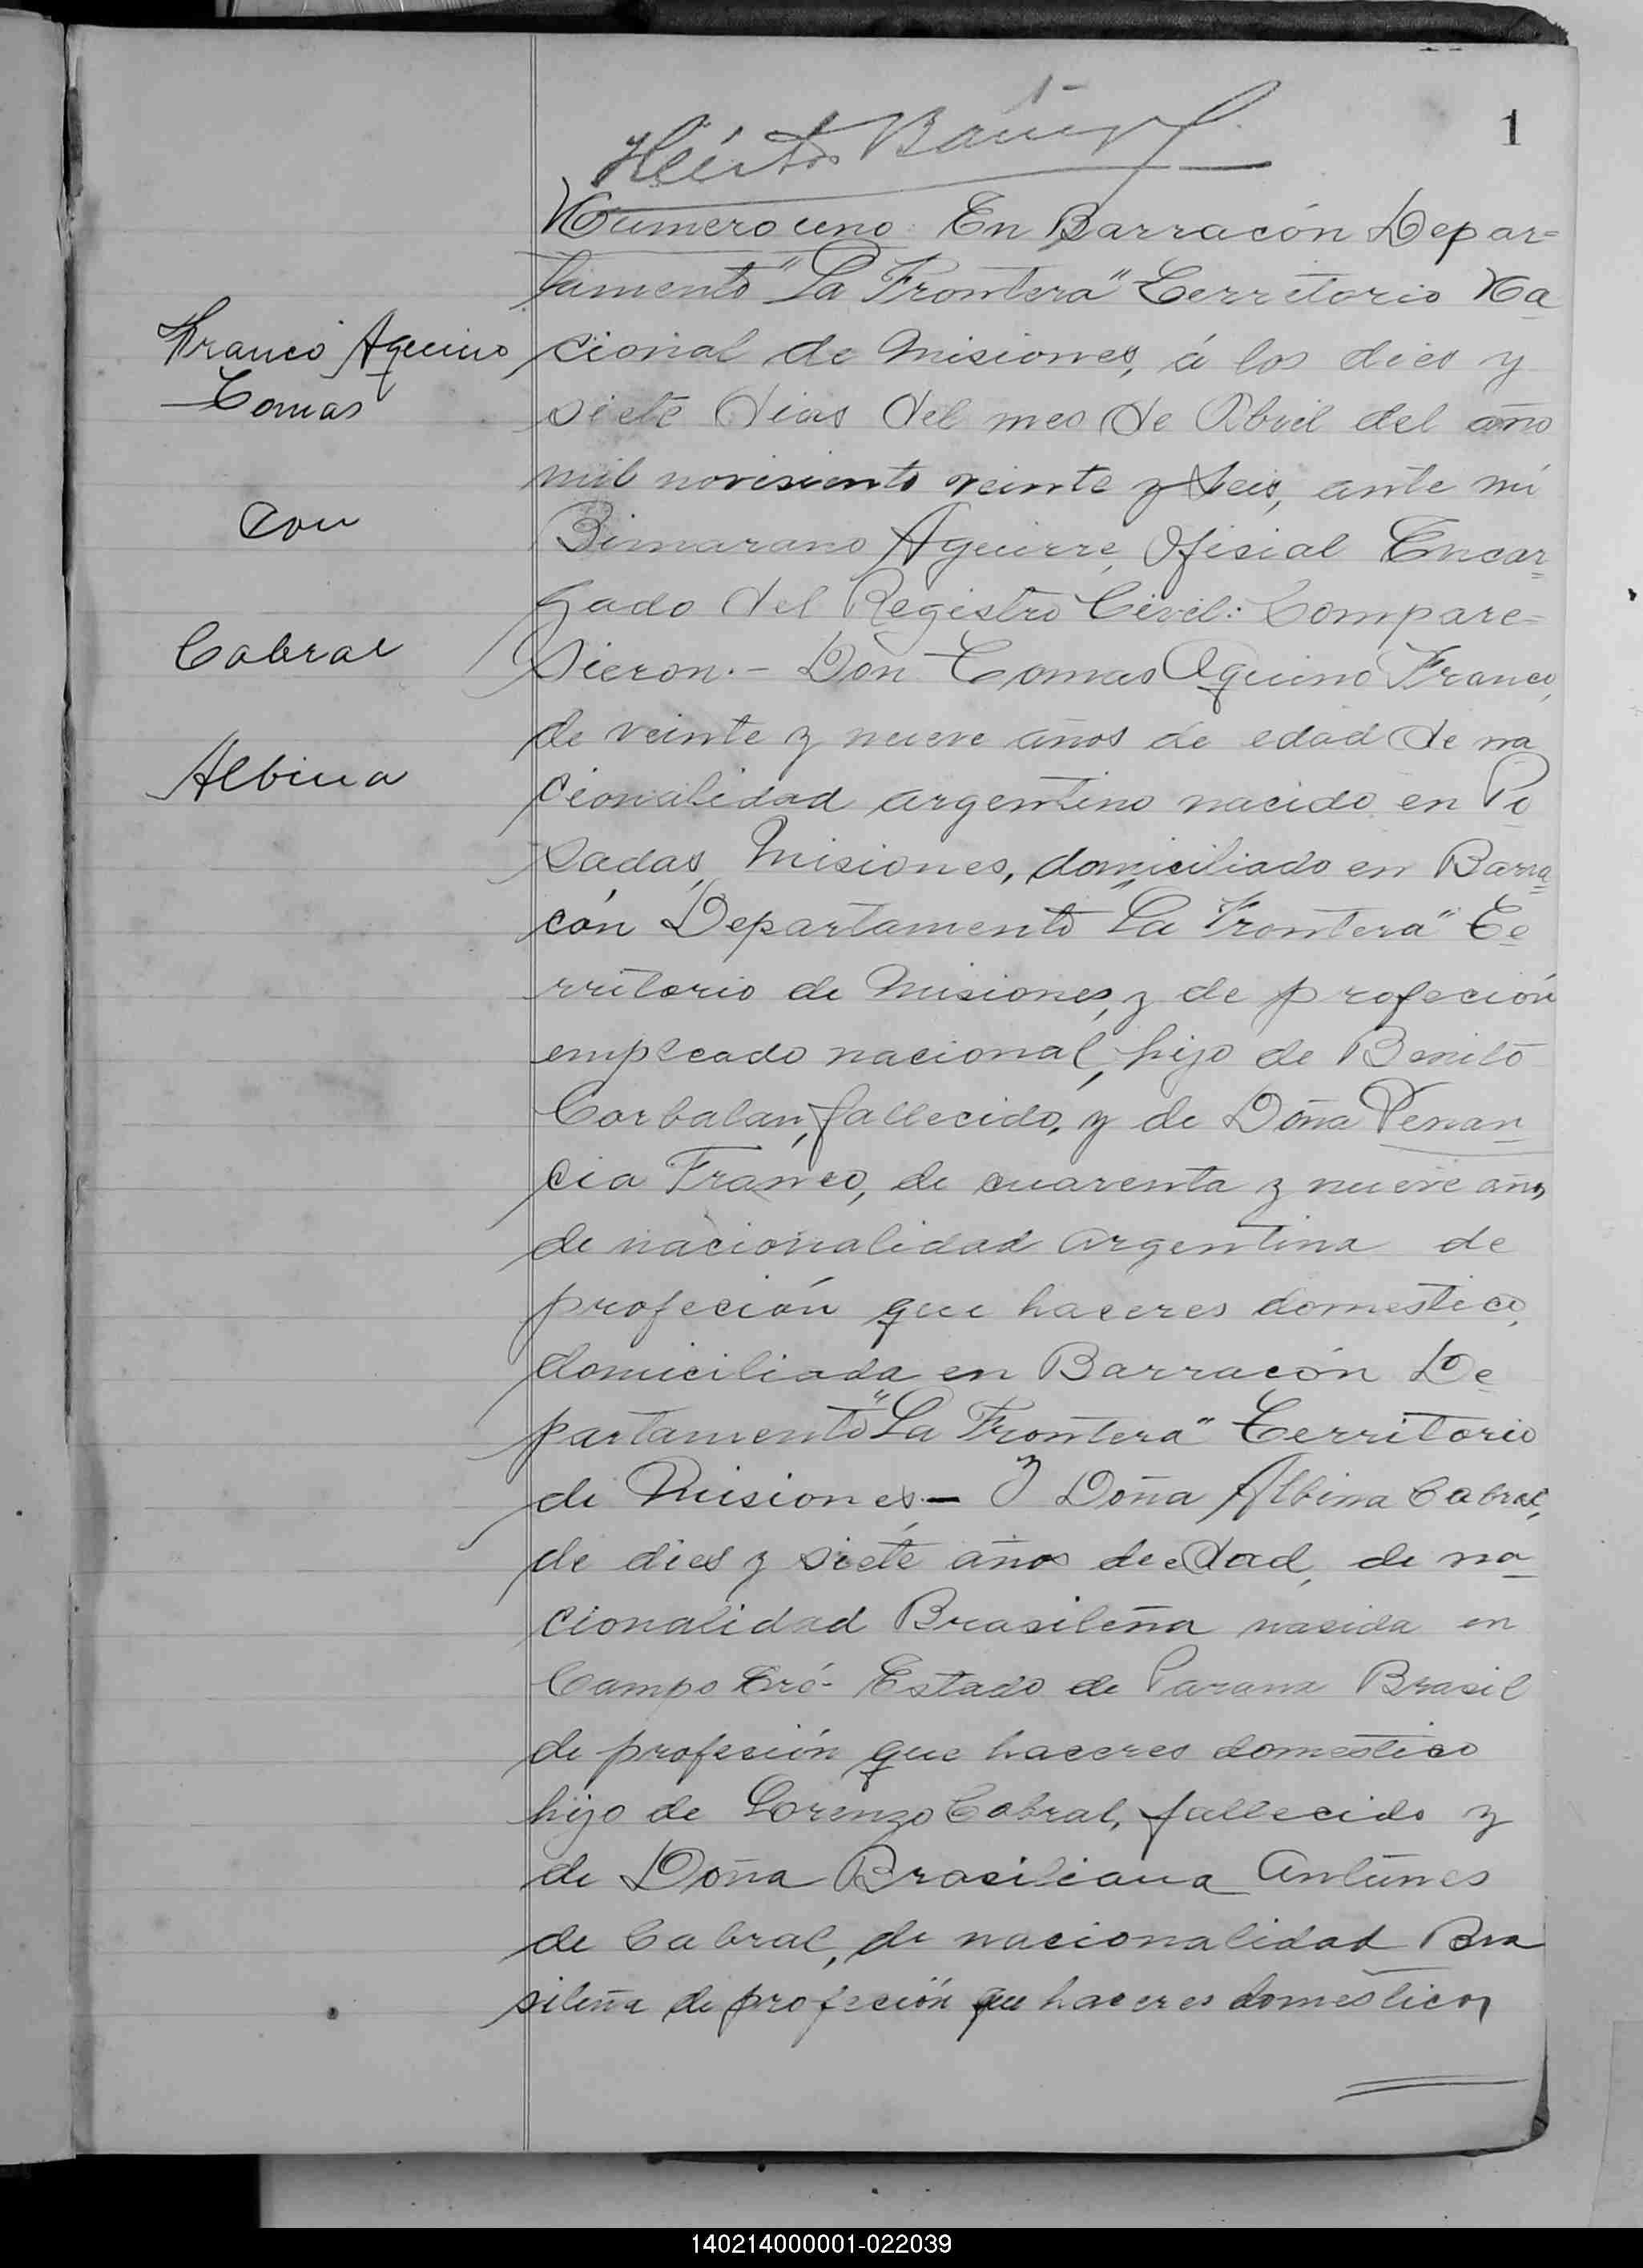 1
Numero uno. En Barracón Depar=
tamento "La Frontera" Territorio Na
cional de Misiones, á los dies y
siete dias del mes de Abril del año
mil novisiento veinte y seis, ante mi
Bimarano Aguirre, Ofisial Encar=
gado del Registro Civil: Compare=
sieron.- Don Tomas Aquino Franco,
de veinte y nueve años de edad de na
cionalidad argentino nacido en Po
sadas, Misiones, domiciliado en Barra
cón Departamento "La Frontera" Te
rritorio de Misiones, y de profeción
empleado nacional, hijo de Benito
Corbalan, fallecido, y de Doña Venan
cia Franco, de cuarenta y nueve años
de nacionalidad argentina de
profeción que haceres domestico,
domiciliada en Barracón De
partamento "La Frontera" Territorio
de Misiones.- Y Doña Albina Cabral,
de dies y siete años de edad, de na
cionalidad Brasileña nasida en
Campo Eré- Estado de Parana Brasil
de profeción que haceres domestico
hijo de Lorenzo Cabral, fallecido y
de Doña Brasiliana Antunes
de Cabral, de nacionalidad Bra
sileña de profeción que haceres domesticos
Franco Aquino
Tomas
con
Cabral
Albina
140214000001-022039